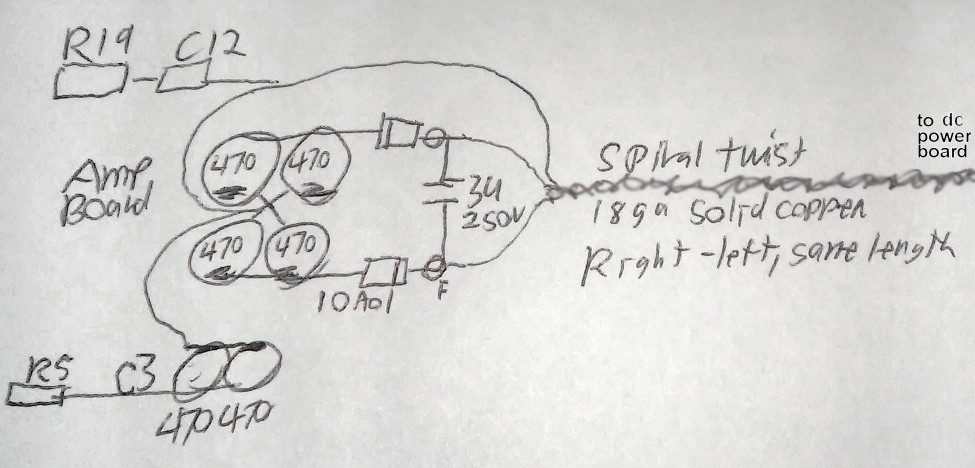 R19 C12
to dc
power
board
Amp
Board
470 470
470 470
3u
250V
Spiral twist
18ga solid copper
Right-left, same length
10A01
F
R5 C3
470 470